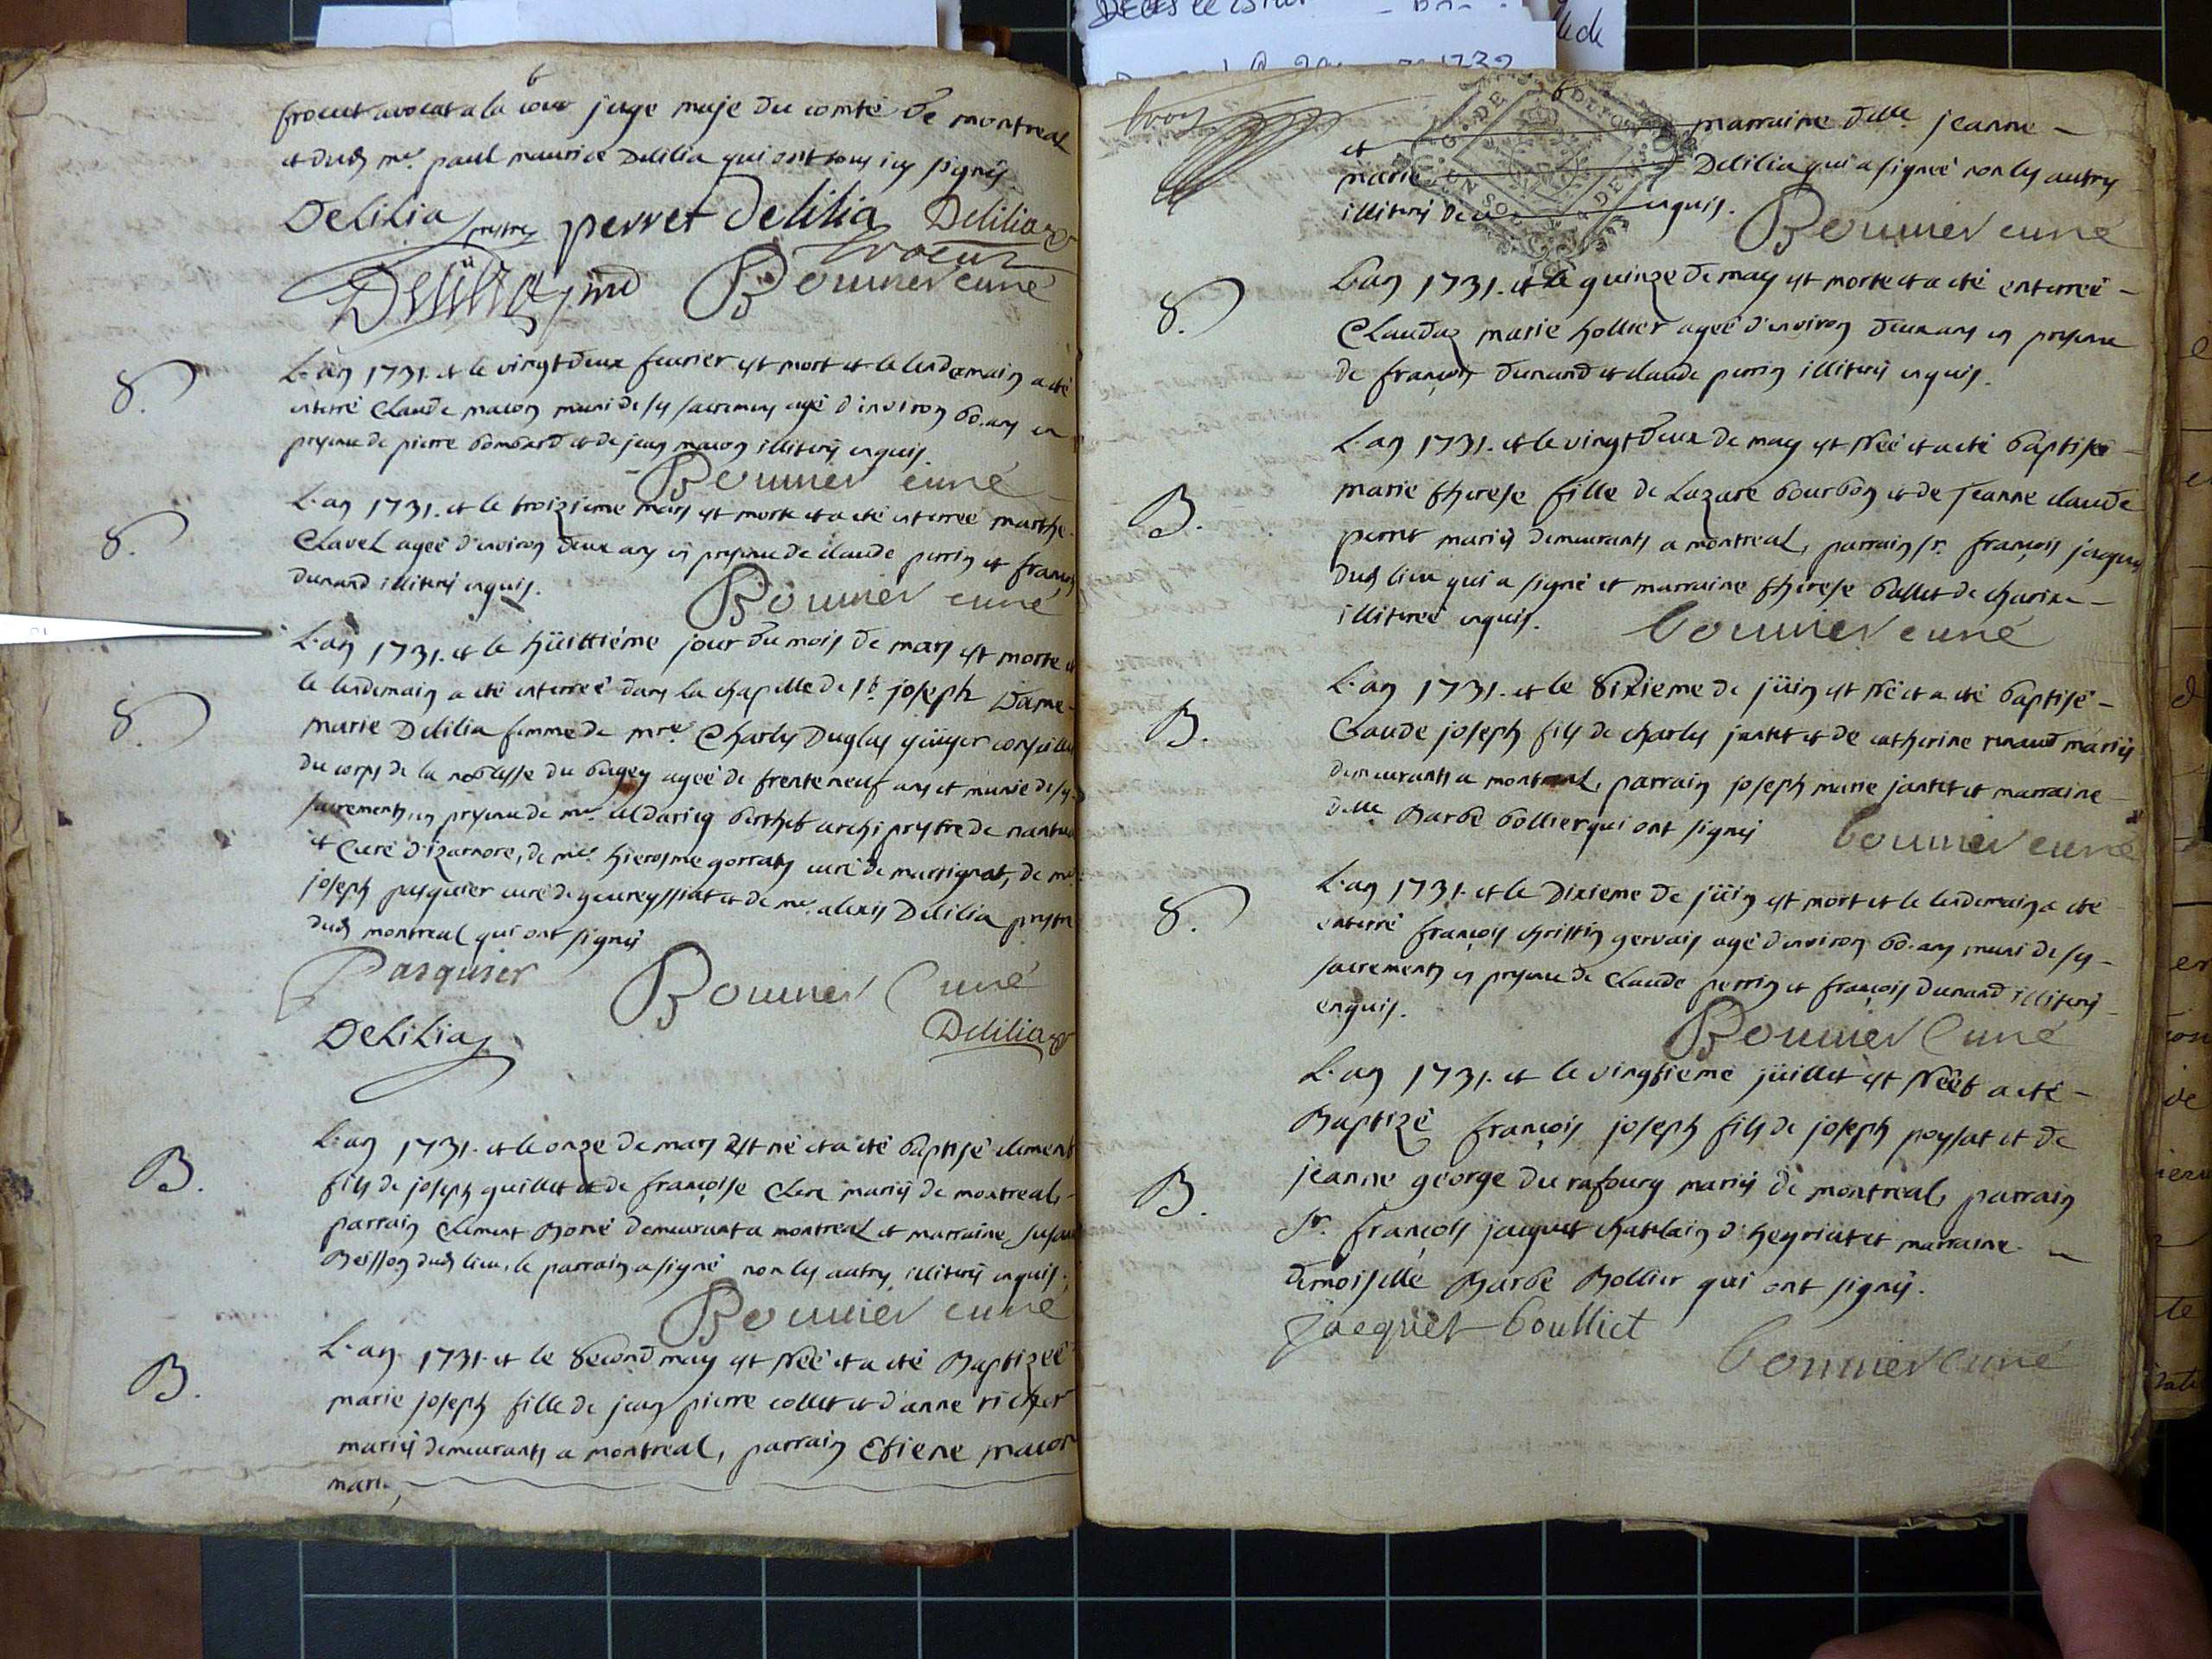 6
frouet avocat a la cour juge maje du comté de montreal
et dud mre. paul maurice Delilia qui ont tous icy signés
DeLiLia prestre perret delilia Delilia
Bonnier curé
S.
L'an 1731. et le vingt deux feurier est mort et le lendemain a eté
enterré Claude macon muni de ses sacremens agé d'environ 60. ans en
presence de pierre bombard et de jean macon illiterés enquis.
Bonnier curé
S.
L'an 1731. et le troizieme mars est morte et a eté enterreé marthe
Clavel ageé d'environ deux ans en presence de claude perrin et françois
dunand illiterés enquis.
Bonnier curé
S.
L'an 1731. et le hüittiéme jour du mois de mars est morte et
le lendemain a eté enterreé dans la chapelle de st. joseph Dame
marie Delilia femme de mre. Charles Duglas ecüyer conseiller
du corps de la noblesse du bugey ageé de trente neuf ans et munie de ses
sacrements en presence de mre. aldaricq berthet archiprestre de nantua
et Curé d'izarnore, de mre. hierosme gorraty curé de martignat, de mre.
joseph pasquier curé de geureyssiat et de mre. alexis Delilia prestre
dud montreal qui ont signés
Pasquier Bonnier Curé
DeLiLia Delilia
B.
L'an 1731. et le onze de mars Est né et a eté baptisé clement
fils de joseph guillet et de françoise Clere mariés de montreal,
parrain Clement Borné demeurant a montreal et marraine
Beisson dud lieu, le parrain a signé non les autres illiterés enquis.
Bonnier curé
B.
L'an 1731. et le second may est Neé et a eté Baptizeé
marie joseph fille de jean pierre collet et d'anne richer
mariés demeurants a montreal, parrain Etiene macon
6
et marraine delle. jeanne
marie Delilia qui a signeé non les autres
illiterés de enquis.
Bonnier curé
S.
L'an 1731. et le quinze de may est morte et a eté enterreé
Claudaz marie hollier ageé d'environ deux ans en presence
de françois dunand et claude perrin illiterés enquis.
B.
L'an 1731. et le vingt deux de may est Neé et a eté baptiseé
marie therese fille de Lazare bourbon et de jeanne claude
perret mariés demeurants a montreal, parrain sr. françois jaques
dud lieu qui a signé et marraine therese ballet de charix
illitereé enquis.
bonnier curé
B.
L'an 1731. et le Sixieme de jüin est Né et a eté baptisé
Claude joseph fils de charles jantet et de catherine renaud mariés
demeurants a montreal, parrain joseph marie jantet et marraine
delle Barbe bollier qui ont signés
bonnier curé
S.
L'an 1731. et le Dixieme de jüin est mort et le lendemain a eté
enterré françois christin gervais agé d'environ 60. ans muni de ses
sacrements en presence de Claude perrin et françois dunand illiterés
enquis.
Bonnier Curé
B.
L'an 1731. et le vingtieme jüillet est Neét a eté
Baptizé françois joseph fils de joseph poysat et de
jeanne george du rafourg mariés de montreal, parrain
sr. françois jaquet chatelain d'heyriat et marraine
demoiselle Barbe Bollier qui ont signés.
jacquet boulliet
bonnier curé